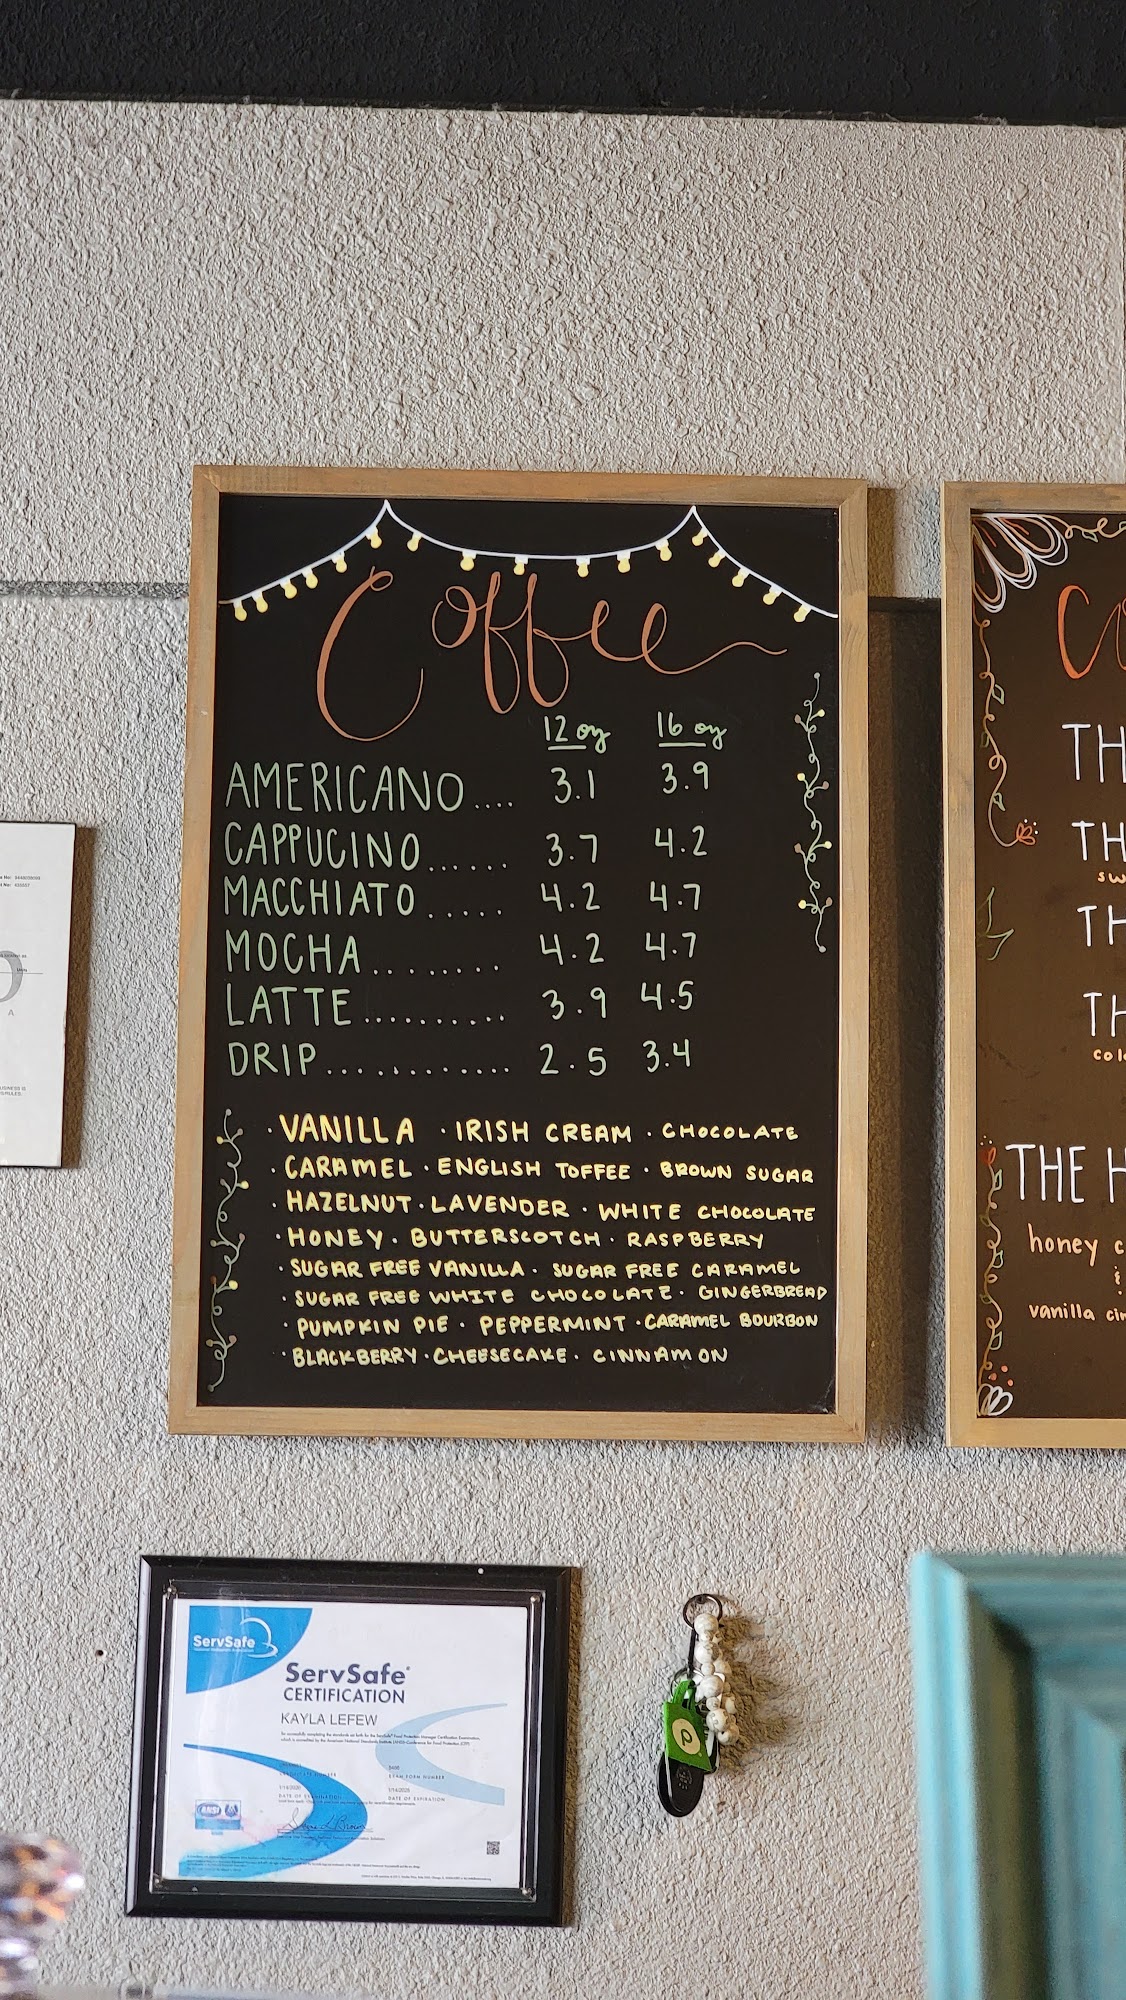 Coffee
12 oz 16 oz
AMERICANO.... 3.1 3.9
CAPPUCINO...... 3.7 4.2
MACCHIATO..... 4.2 4.7
MOCHA........ 4.2 4.7
LATTE.......... 3.9 4.5
DRIP.............. 2.5 3.4
· VANILLA · IRISH CREAM · CHOCOLATE
· CARAMEL · ENGLISH TOFFEE · BROWN SUGAR
· HAZELNUT · LAVENDER · WHITE CHOCOLATE
· HONEY · BUTTERSCOTCH · RASPBERRY
· SUGAR FREE VANILLA · SUGAR FREE CARAMEL
· SUGAR FREE WHITE CHOCOLATE · GINGERBREAD
· PUMPKIN PIE · PEPPERMINT · CARAMEL BOURBON
· BLACKBERRY · CHEESECAKE · CINNAMON
TH
TH
SW
TH
TH
COL
THE H
honey c
vanilla cin
ServSafe
ServSafe®
CERTIFICATION
KAYLA LEFEW
DATE OF EXAMINATION
DATE OF EXPIRATION
ANSI